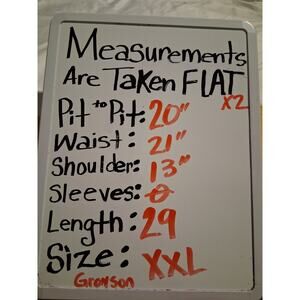 Measurements
Are Taken FLAT
X2
Pit to Pit: 20"
Waist: 21"
Shoulder: 13"
Sleeves: 0
Length: 29
Size: XXL
Grayson